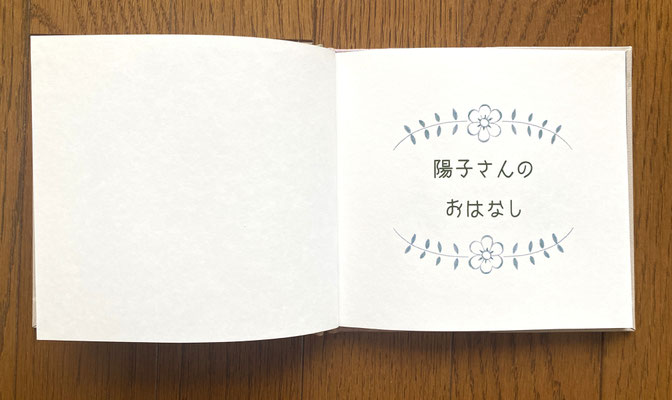 陽子さんの
おはなし